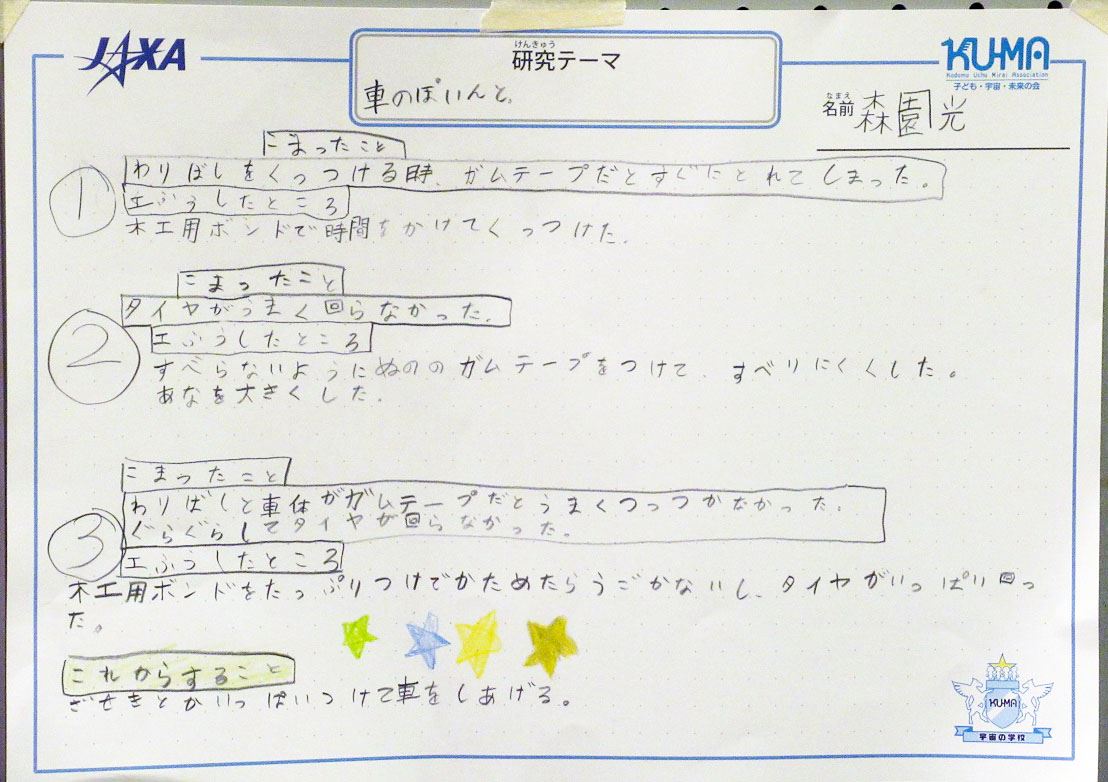 JAXA
けんきゅう
研究テーマ
車のぽいんと。
KU-MA
Kodomo Uchu Mirai Association
子ども・宇宙・未来の会
なまえ
名前 森園光
こまったこと
① わりばしをくっつける時、ガムテープだとすぐにとれてしまった。
工ふうしたところ
木工用ボンドで時間をかけてくっつけた。
こまったこと
タイヤがうまく回らなかった。
② 工ふうしたところ
すべらないようにぬののガムテープをつけて、すべりにくくした。
あなを大きくした。
こまったこと
わりばしと車体がガムテープだとうまくつっつかなかった。
③ ぐらぐらしてタイヤが回らなかった。
工ふうしたところ
木工用ボンドをたっぷりつけてかためたらうごかないし、タイヤがいっぱい回っ
た。
これからすること
ざせきとかいっぱいつけて車をしあげる。
KU-MA
宇宙の学校